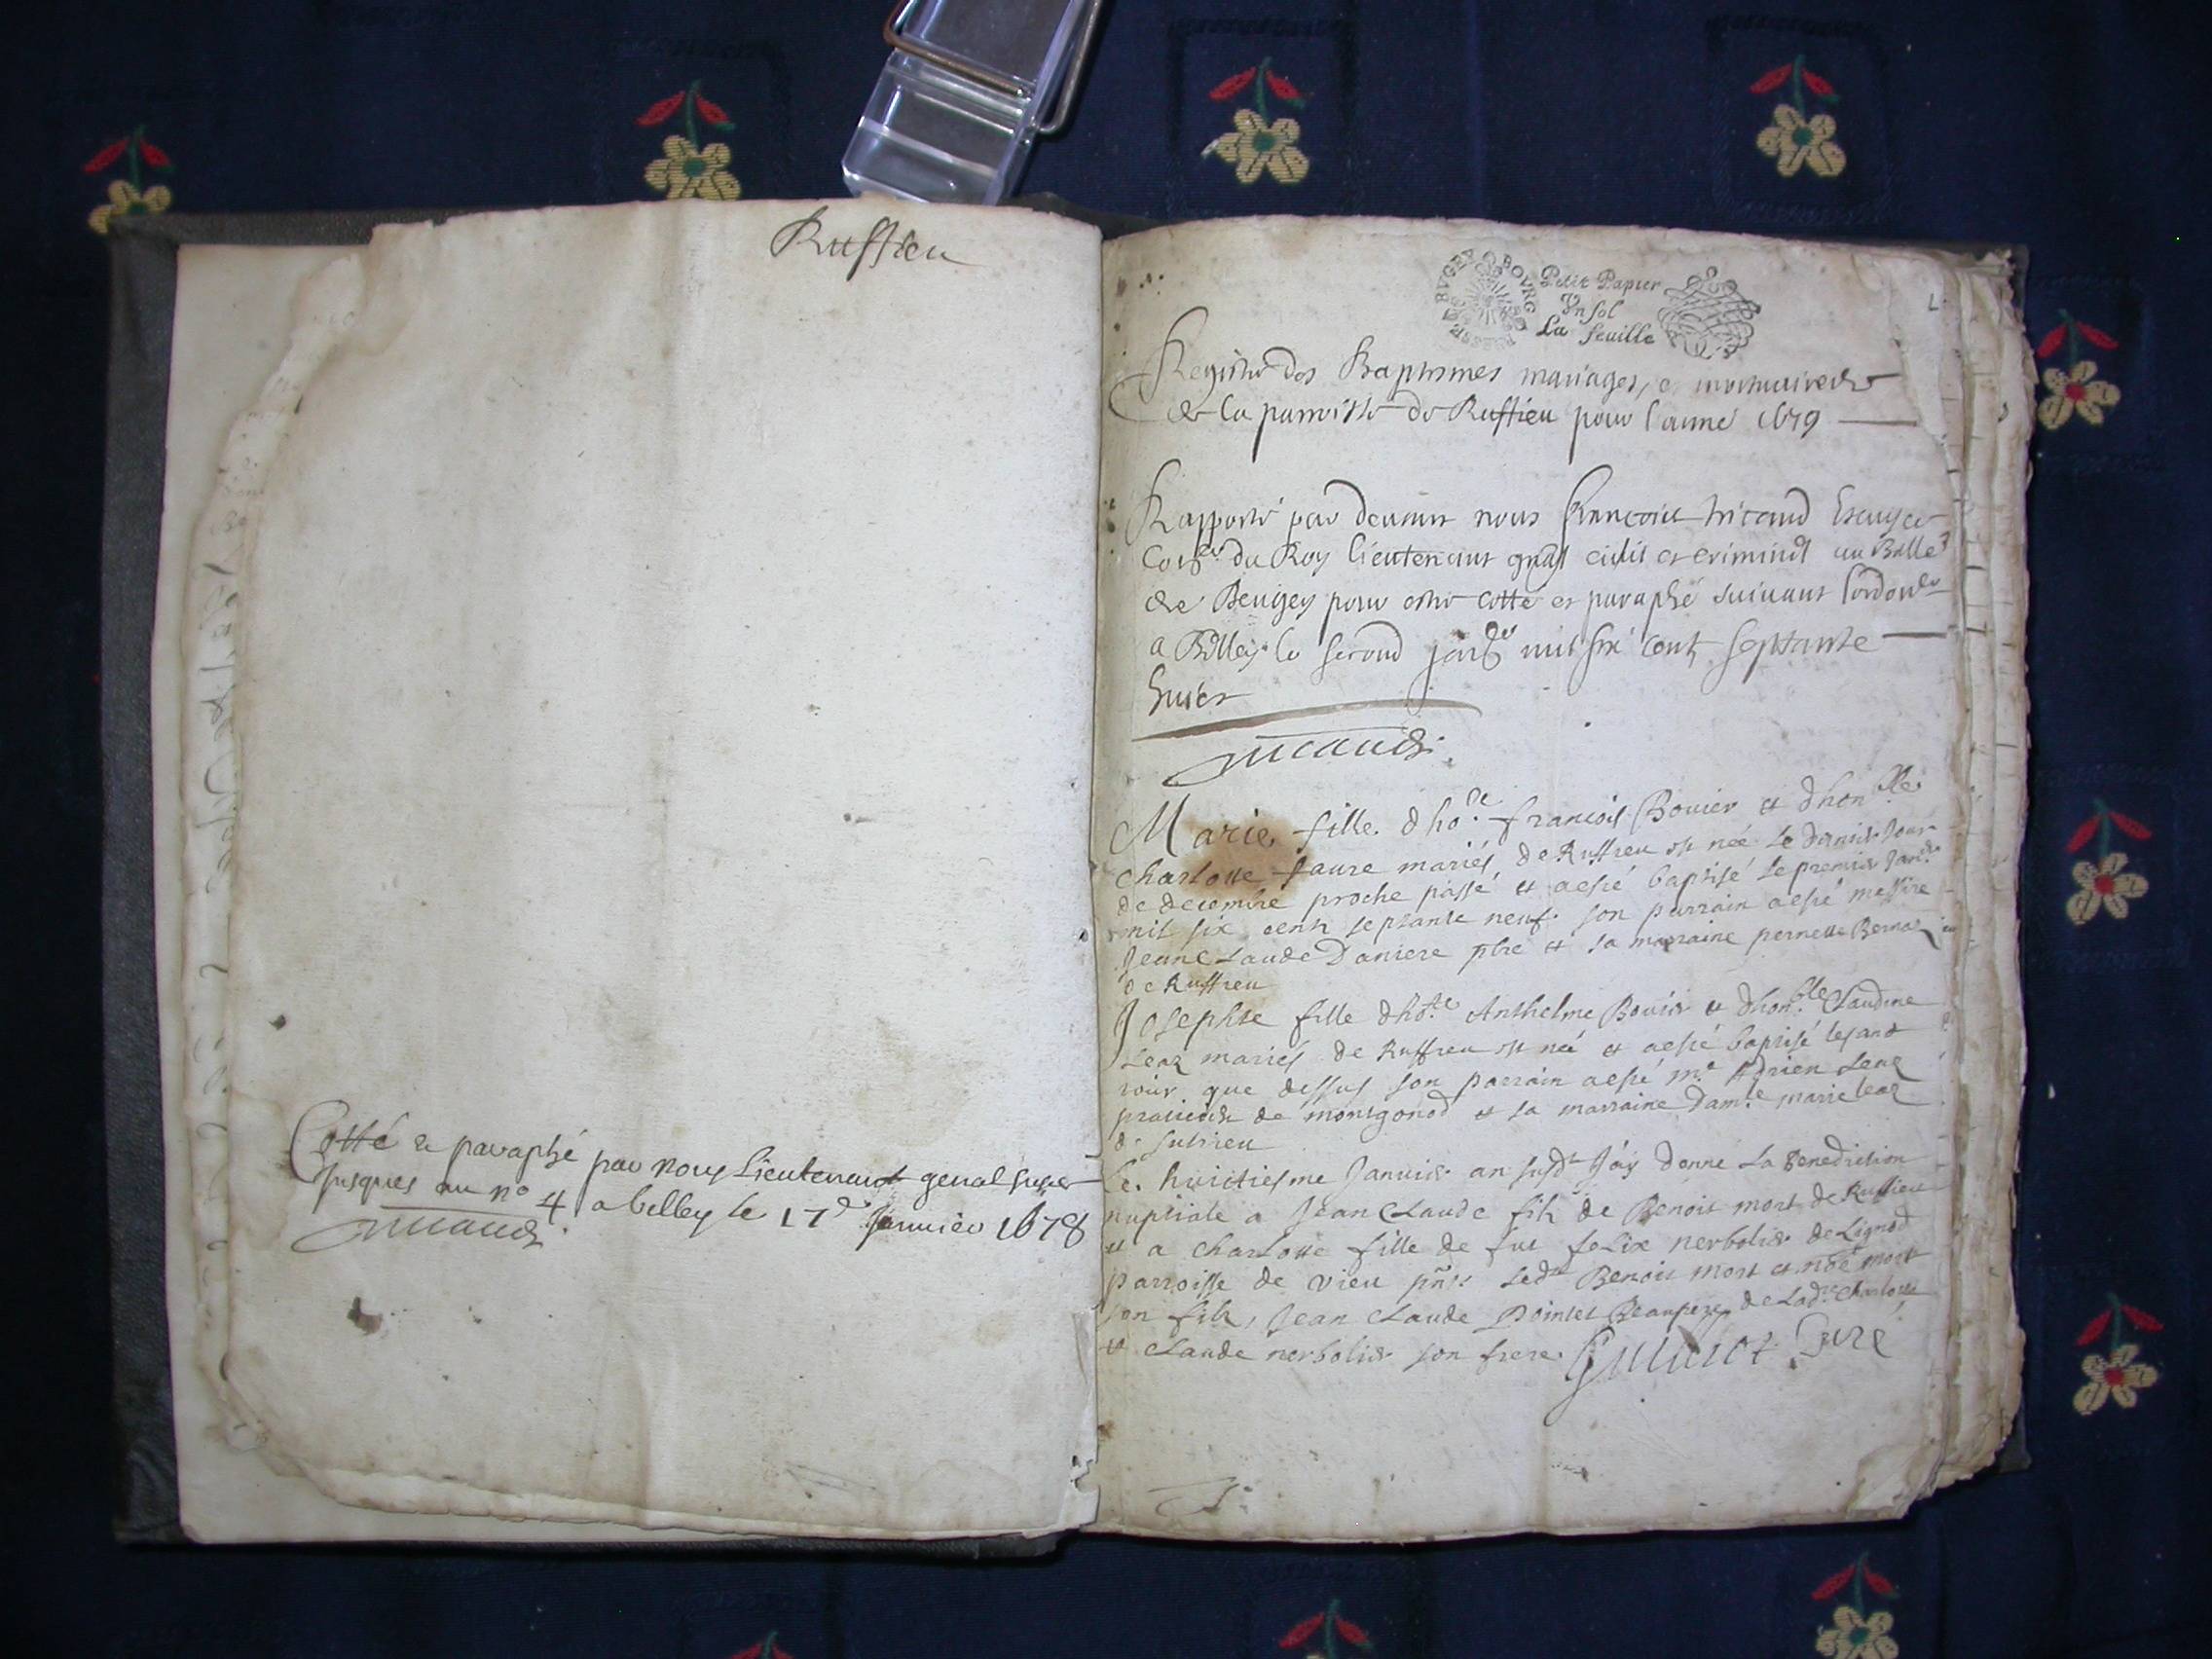 Ruffieu
Cotté & paraphé par nous Lieutenant genal
Jusques au no 4 a belley le 17e Januier 1678
BVGEY BOVRG
Petit Papier
Vn sol
La feuille
Registre des Baptismes mariages, et mortuaires
de la parroisse de Ruffieu pour l'année 1679
Rapporté par deuant nous François Escuyer
Conser du Roy lieutenant gnal ciuil et criminel au Balle
de Beugey pour estre cotté et paraphé suiuant l'ordonce
a Belley le second mil six cent septante
huict
Marie, fille dhoe francois Bouier et dhonble
charlotte faure mariés de Ruffieu est née le dernier Jour
de decembre proche passé et aesté baptisé le premier Janr
mil six cents septante neuf. son parrain aesté messire
Jean Claude Daniere pbre et sa marraine pernette
de Ruffieu
Josephte fille dhoe Anthelme Bouier et dhonble Claudine
mariés de Ruffieu est née et aesté baptisé
que dessus son parrain aesté me Adrien
de montgonod et sa marraine Damle marie
de Sutrieu
Le huictiesme Januier an susdt Jay donne La Benediction
nuptiale a Jean Claude fils de Benoit mort de Ruffieu
et a Charlotte fille de feu felix nerbolier de Lignod
parroisse de vieu pnts Ledt Benoit mort et mort
son fils, Jean Claude Pointet Beaupere de Ladte Charlotte
et Claude nerbolier son frere. Curé